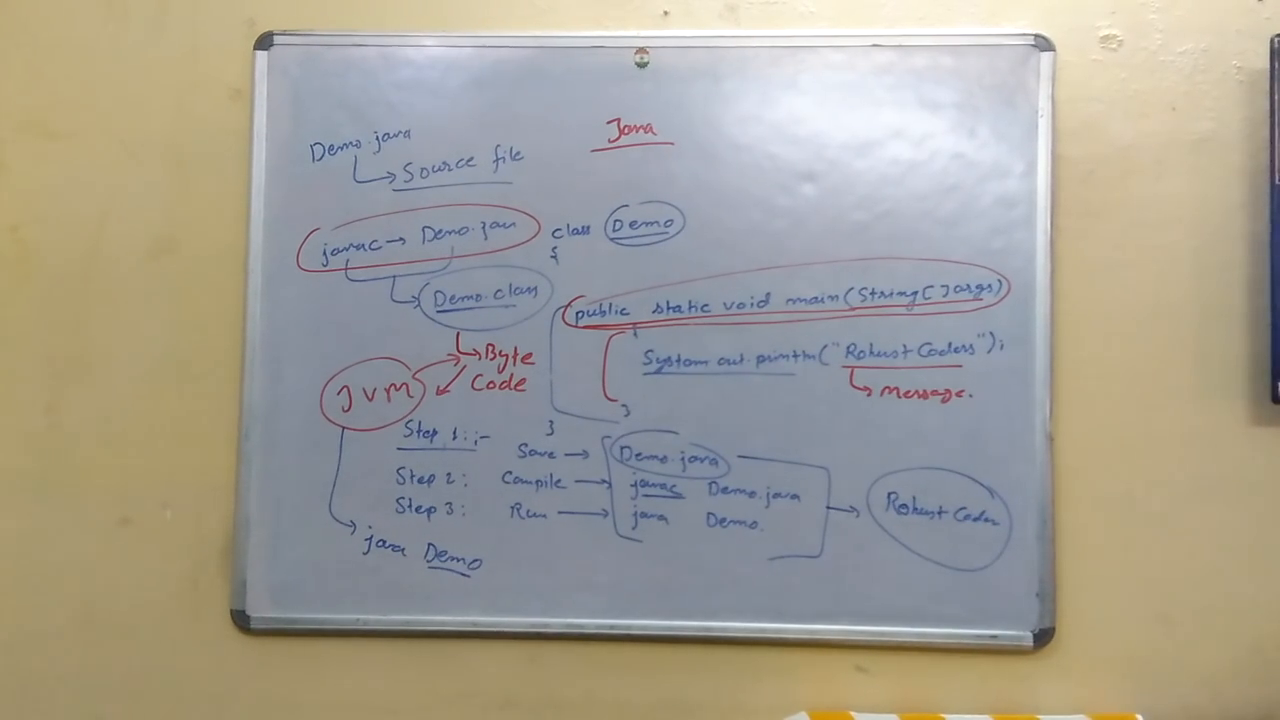 Java
Demo.java
Source file
javac → Demo.java
Demo.class
Byte
Code
JVM
java Demo
class Demo
{
public static void main(String[]args)
{
System.out.println("Robust Coders");
message.
}
}
Step 1:- Save → Demo.java
Step 2: Compile → javac Demo.java
Step 3: Run → java Demo.
Robust Coder